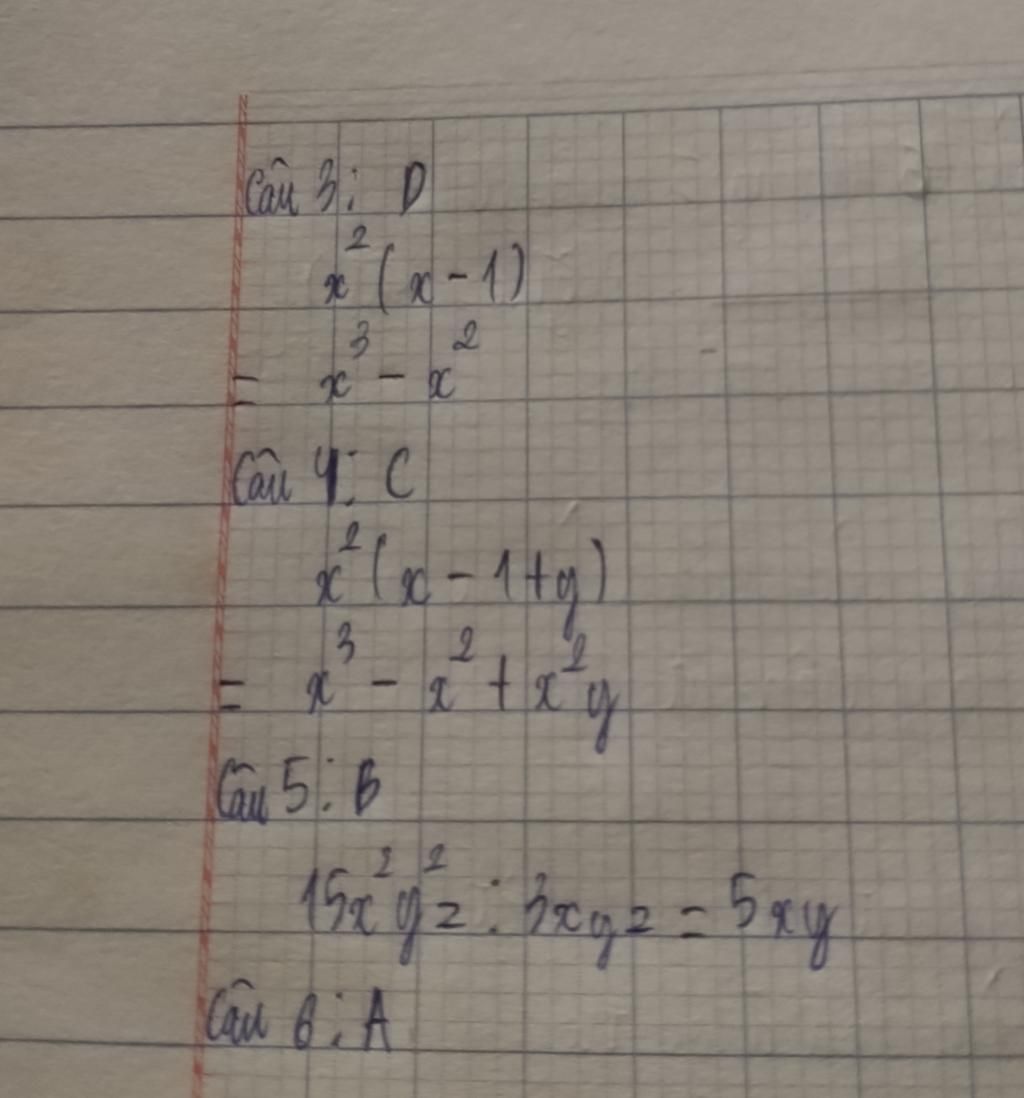 Câu 3: D
x²(x - 1)
= x³ - x²
Câu 4: C
x²(x - 1 + y)
= x³ - x² + x²y
Câu 5: B
15x²y²z : 3xyz = 5xy
Câu 6: A